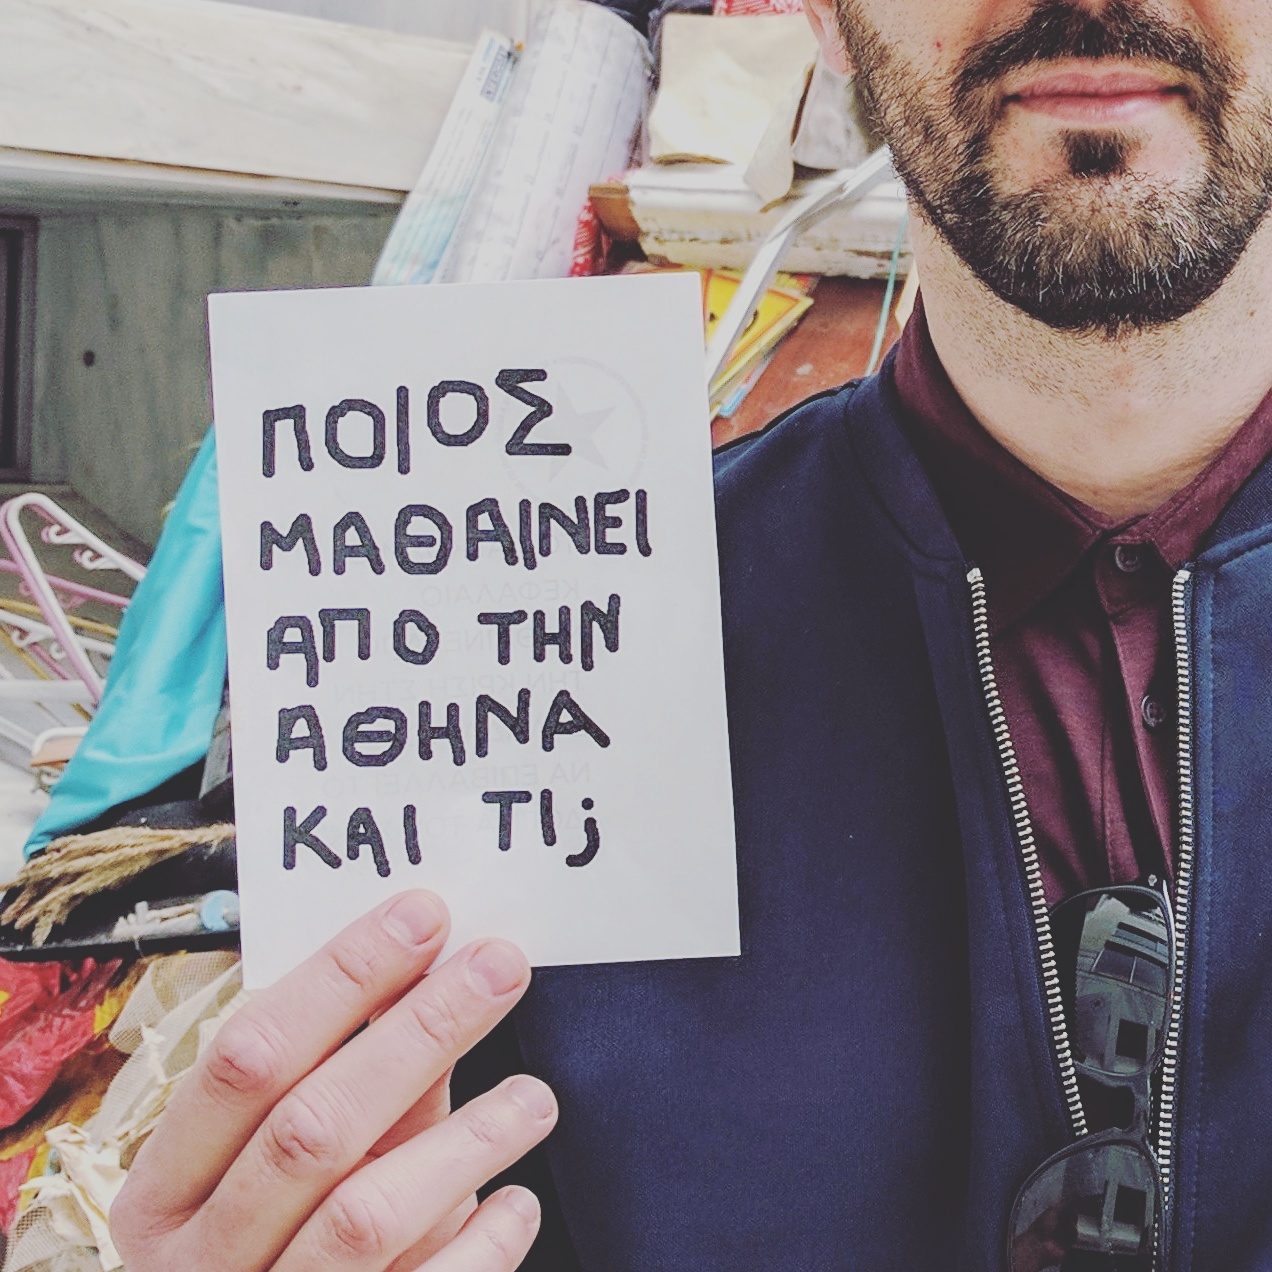 ΠΟΙΟΣ
ΜΑΘΑΙΝΕΙ
ΑΠΟ ΤΗΝ
ΑΘΗΝΑ
ΚΑΙ ΤΙ;